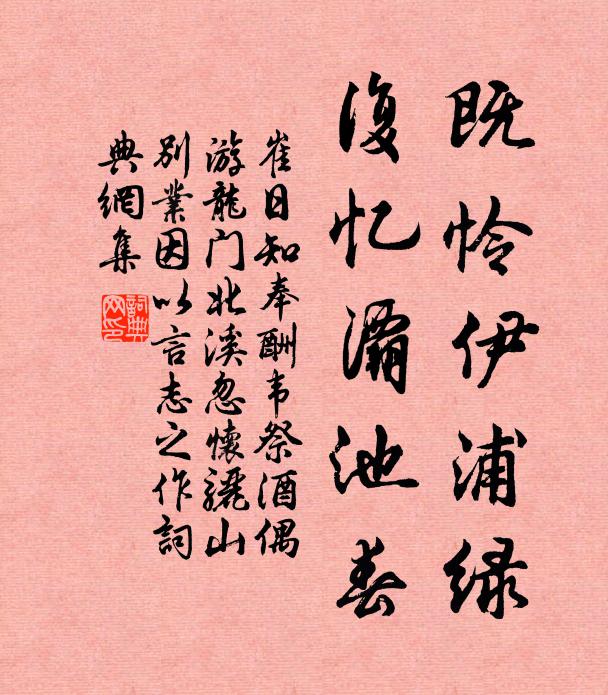 既怜伊浦绿
復忆灞池春
崔日知奉酬韦祭酒偶
游龍门北溪忽懷驪山
别業因以言志之作詞
典網集
詞典网印